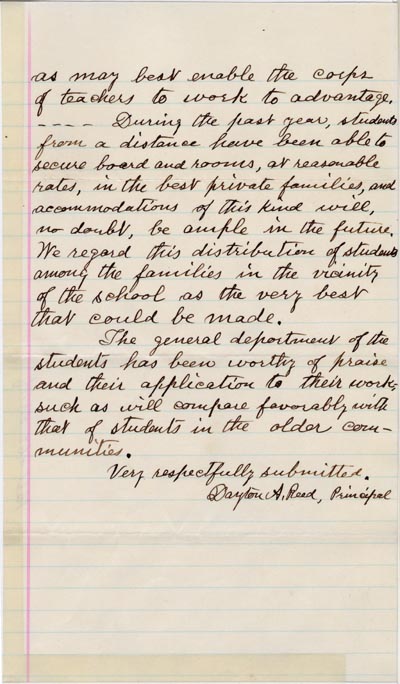 as may best enable the corps
of teachers to work to advantage.
---- During the past year, students
from a distance have been able to
secure board and rooms, at reasonable
rates, in the best private families, and
accommodations of this kind will,
no doubt, be ample in the future.
We regard this distribution of students
among the families in the vicinity
of the school as the very best
that could be made.
The general deportment of the
students has been worthy of praise
and their application to their work,
such as will compare favorably with
that of students in the older com-
munities.
Very respectfully submitted.
Dayton A. Reed, Principal